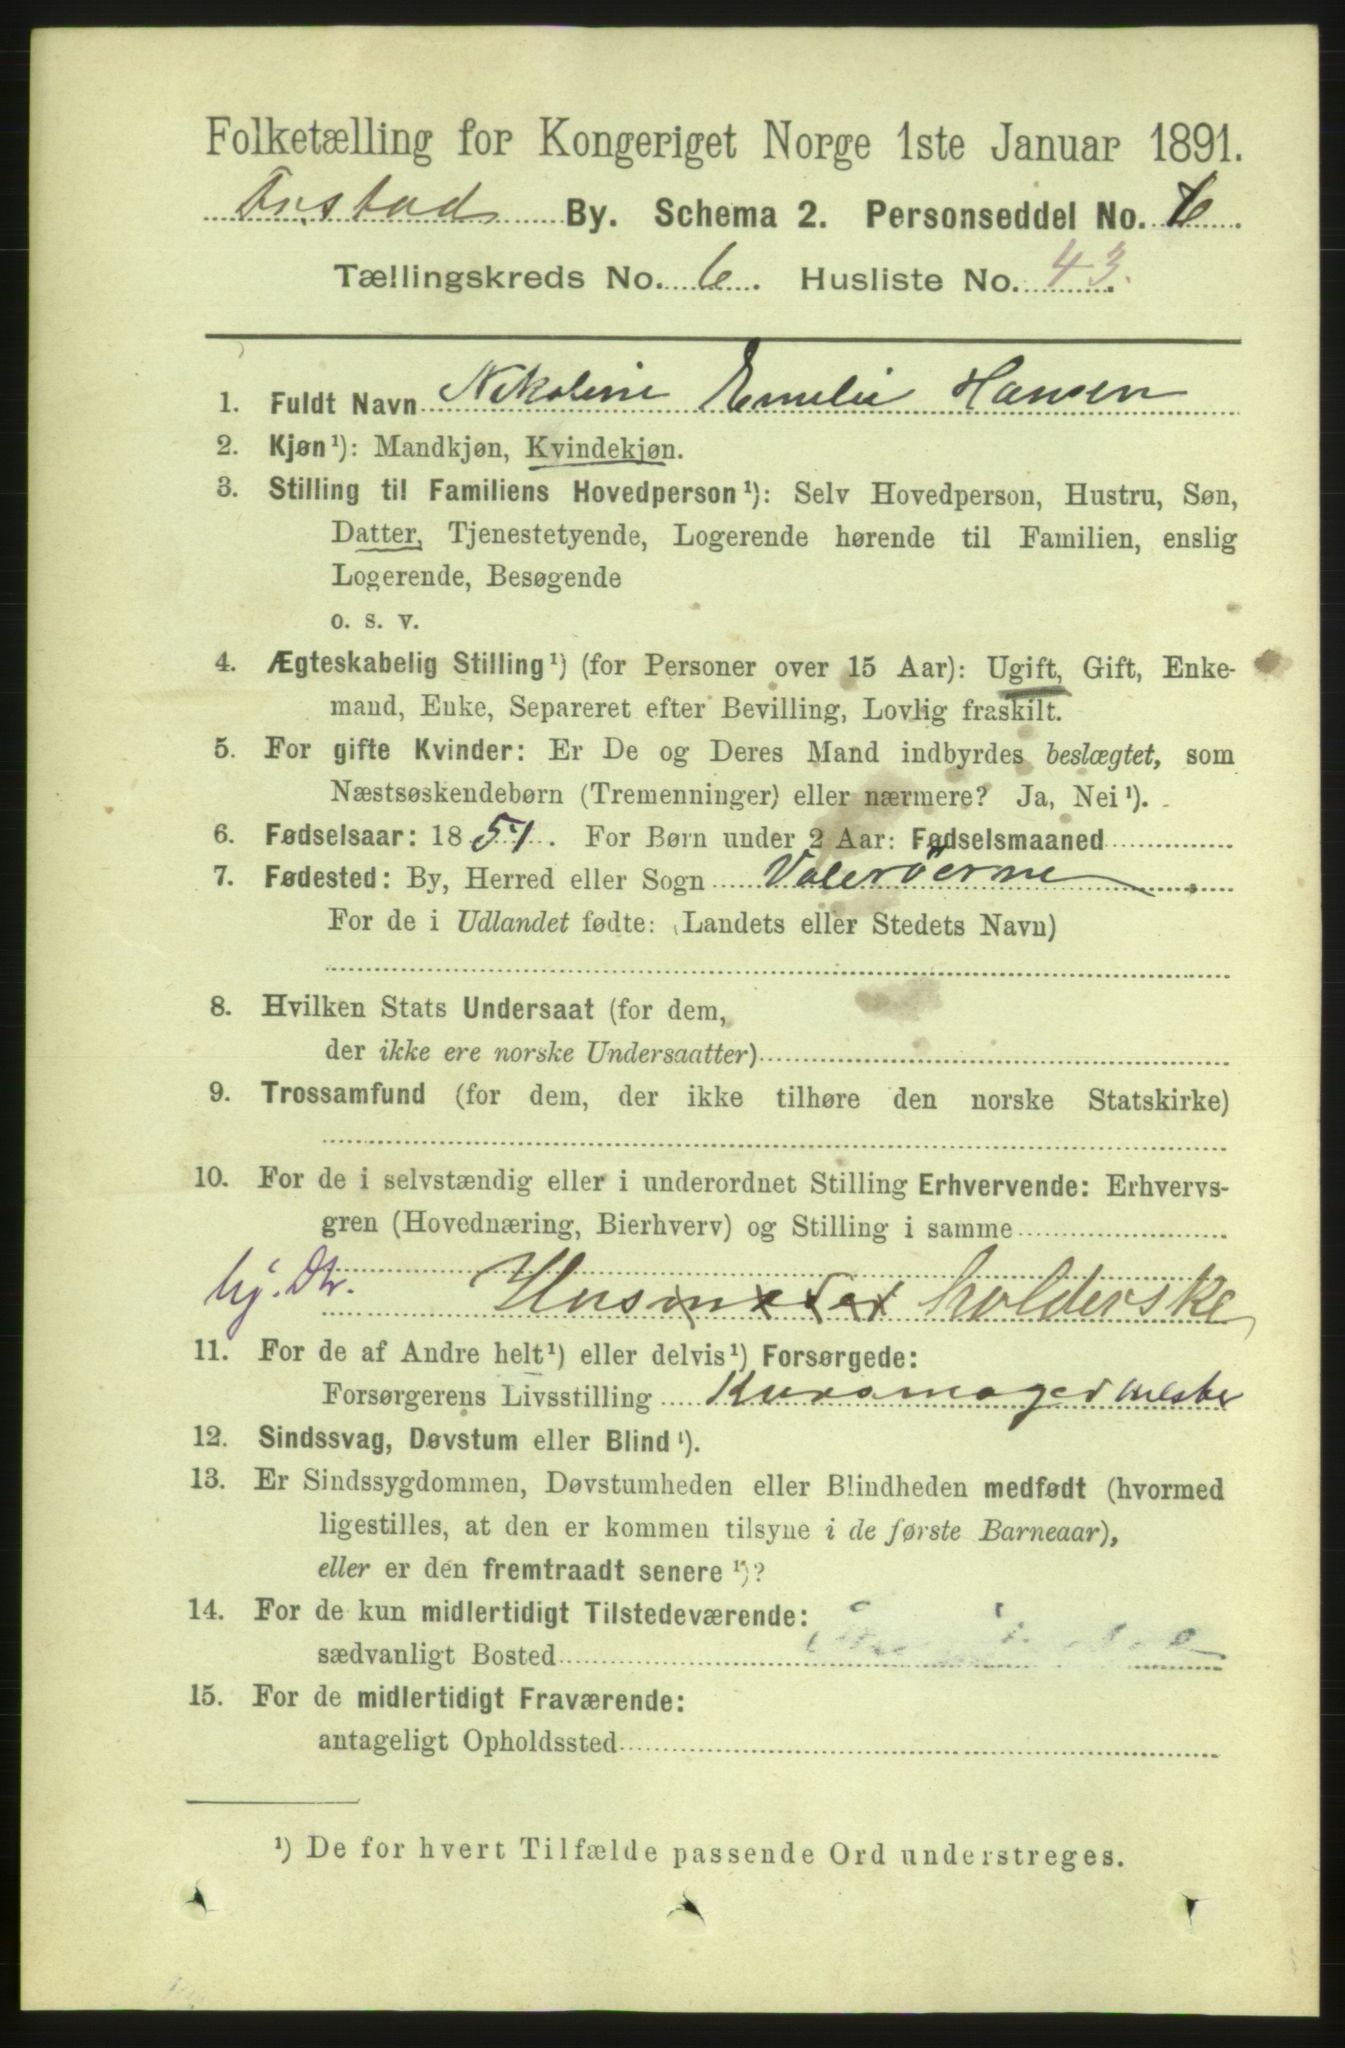 Folketælling for Kongeriget Norge 1ste Januar 1891.
By. Schema 2. Personseddel No. 6
Tællingskreds No. 6. Husliste No. 43.
1. Fuldt Navn Nikoline Emelie Hansen
2. Kjøn¹): Mandkjøn, Kvindekjøn.
3. Stilling til Familiens Hovedperson¹): Selv Hovedperson, Hustru, Søn,
Datter, Tjenestetyende, Logerende hørende til Familien, enslig
Logerende, Besøgende
o. s. v.
4. Ægteskabelig Stilling¹) (for Personer over 15 Aar): Ugift, Gift, Enke-
mand, Enke, Separeret efter Bevilling, Lovlig fraskilt.
5. For gifte Kvinder: Er De og Deres Mand indbyrdes beslægtet, som
Næstsøskendebørn (Tremenninger) eller nærmere? Ja, Nei¹).
6. Fødselsaar: 1851. For Børn under 2 Aar: Fødselsmaaned
7. Fødested: By, Herred eller Sogn Valerøerne
For de i Udlandet fødte: (Landets eller Stedets Navn)
8. Hvilken Stats Undersaat (for dem,
der ikke ere norske Undersaatter)
9. Trossamfund (for dem, der ikke tilhøre den norske Statskirke)
10. For de i selvstændig eller i underordnet Stilling Erhvervende: Erhvervs-
gren (Hovednæring, Bierhverv) og Stilling i samme
hj. Dtr. Husmoder holderske
11. For de af Andre helt¹) eller delvis¹) Forsørgede:
Forsørgerens Livsstilling
12. Sindssvag, Døvstum eller Blind¹).
13. Er Sindssygdommen, Døvstumheden eller Blindheden medfødt (hvormed
ligestilles, at den er kommen tilsyne i de første Barneaar),
eller er den fremtraadt senere¹)?
14. For de kun midlertidigt Tilstedeværende:
sædvanligt Bosted
15. For de midlertidigt Fraværende:
antageligt Opholdssted
¹) De for hvert Tilfælde passende Ord understreges.